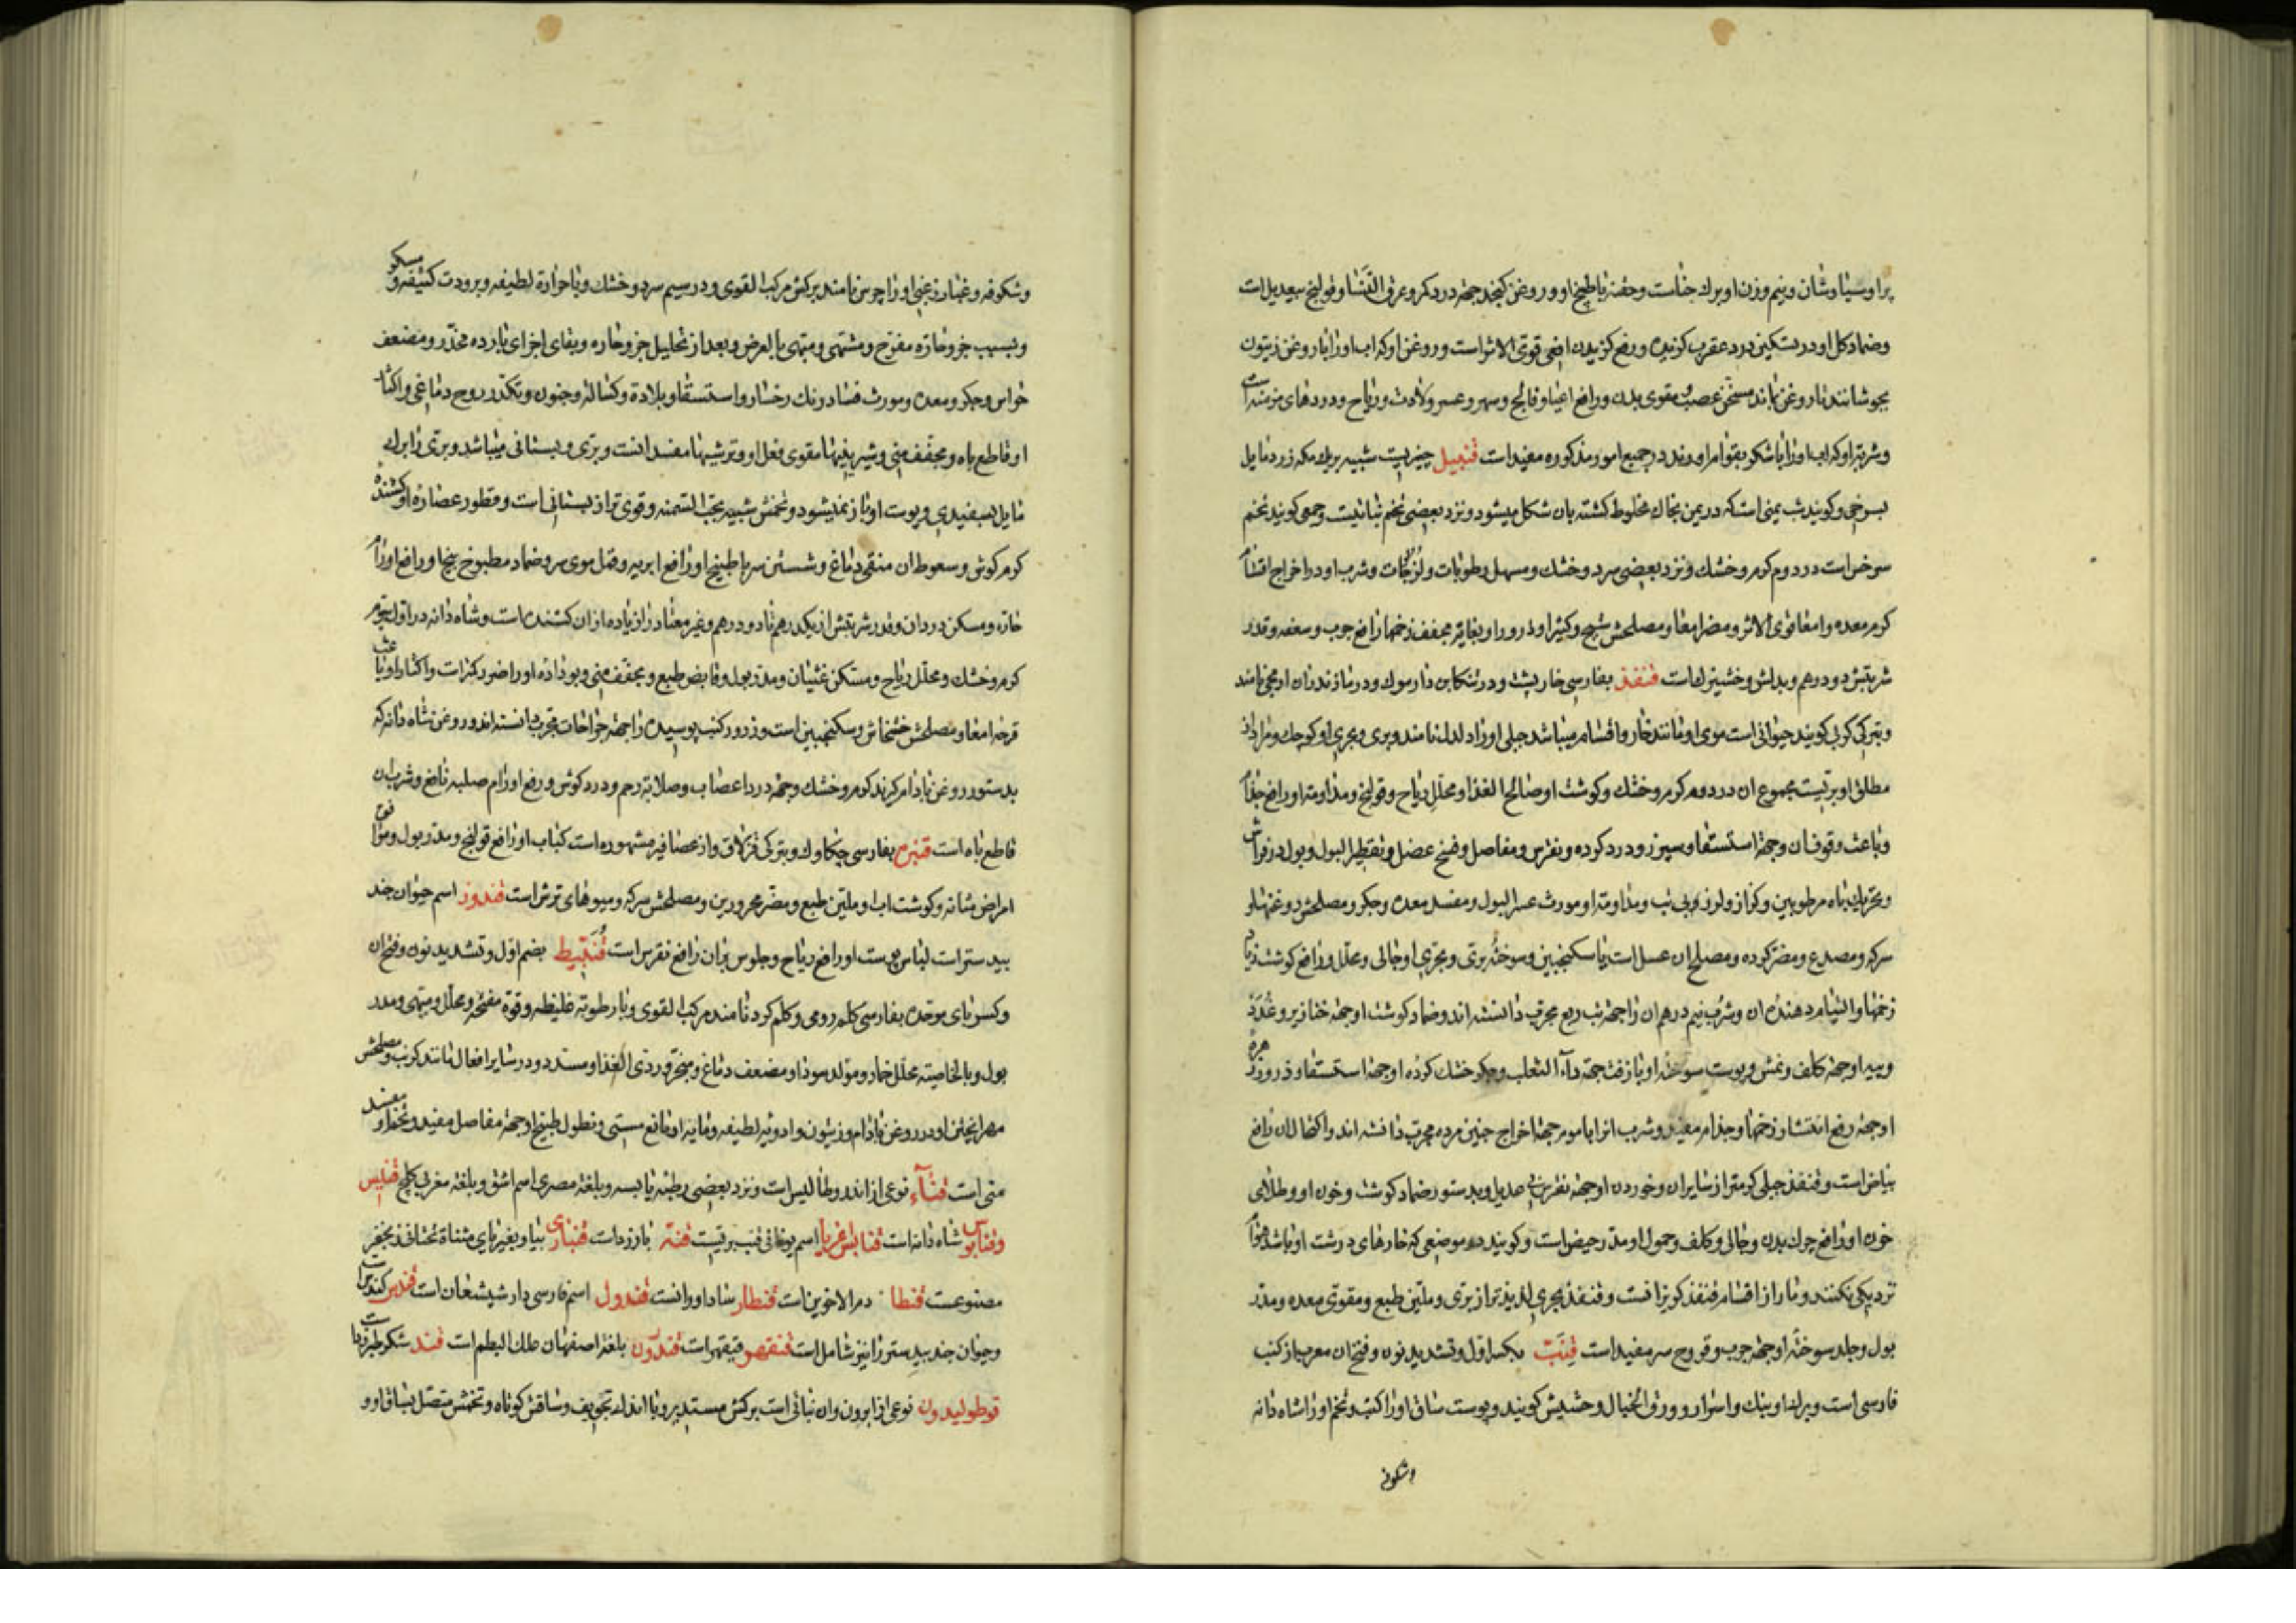 پراوسیاوشان وبنیم وزن او برك حناست وحقنه باطبیخ او و روغن کنجد جهة درد کمر وعرق النسا وقولنج بیعدیل است
وضماد کل او در تسکین درد عقرب کزیده ورفع کزیدن افعی قوی الاثر است وروغن او که اب اورا با روغن زیتون
بجوشانند تا روغن بماند مسخن عصب ومقوی بدن ورافع اعیا وفالج وسهر وعسر ولادت وریاح ودردهای مزمنه است
وشربت او که اب اورا با شکر بقوام اورند در جمیع امور مذکوره مفید است قنبیل چیزیست شبیه بریك مکه زرد مایل
بسرخی وکویند شب یمنی است که در یمن بخاك مخلوط کشته بان شکل میشود ونزد بعضی تخم نباتیست وجمعی کویند تخم
سرخس است در دوم کرم وخشك ونزد بعضی سرد وخشك ومسهل رطوبات ولزوجات وشرب او در اخراج اقسام
کرم معده وامعا قوی الاثر ومضر امعا ومصلحش شیح وکثیرا وذرور او بغایة مجفف زخمها رافع جرب وسعفه وقدر
شربتش دو درهم وبدلش وخشیزك است قنفذ بفارسی خارپشت ودر تنکابن دارموك ودر مازندران ارمجی نامند
وبترکی کرپی کویند حیوانی است موی او مانند خار واقسام میباشد جبلی اورا دلدل نامند وبری وبحری او کوچك ومراد از
مطلق او بریست مجموع ان در دوم کرم وخشك وکوشت او صالح الغذا ومحلل ریاح وقولنج ومداومت او رافع جذام
وباعث وقوف ان وجهة استسقا وسپرز ودرد کرده ونقرس ومفاصل وفسخ عضل وتقطیر البول وبول در فراش
وتحریك باه مرطوبین وکزاز ولرز بی تب ومداومة او مورث عسر البول ومفسد معده وجکر ومصلحش روغنها و
سرکه ومصدع ومضر کرده ومصلح ان عسل است با سکنجبین وسوخته بری وبحری او جالی ومحلل ورافع کوشت زیاد
زخمها والتیام دهنده ان وشرب نیم درهم ان را جهة تب ربع مجرب دانسته اند وضماد کوشت او جهة خنازیر وغدد
وپیه او جهة کلف ونمش وپوست سوخته او با زفت جهة داء الثعلب وجکر خشك کرده او جهة استسقا وذرور زهره
او جهة رفع انتشار زخمها وجذام مفید وشرب انرا با موم جهة اخراج جنین مرده مجرب دانسته اند واکتحال ان رافع
بیاض است وقنفذ جبلی کرمتر از سایران وخوردن او جهة نقرس بی عدیل وبدستور ضماد کوشت وخون او وطلای
خون او رافع چرك بدن وجالی وکلف وحمول او مدر حیض است وکویند در موضعی که خارهای درشت او باشد هوام
نزدیکی نکنند ومار از اقسام قنفذ کریزانست وقنفذ بحری لذیذتر از بری وملین طبع ومقوی معده ومدر
بول وجلد سوخته او جهة جرب وقروح سر مفید است قنب بکسر اول وتشدید نون وفتح ان معرب از کنب
فارسی است وبرك او بنك واسرار وورق الخیال وحشیش کویند وپوست ساق اورا کنب وتخم اورا شاه دانه
وشکوفه
وشکوفه وغبار زغبی اورا چرس نامند برکش مرکب القوی ودر سیم سرد وخشك وبا حرارة لطیفه وبرودت کثیفه ومسکر
وبسبب جزو حاره مفتح ومشتهی ومبهی بالعرض وبعد از تحلیل جزو حاره وبقای اجزای بارده مخدر ومضعف
حواس وجکر ومعده ومورث فساد رنك رخسار واستسقا وبلادة وکسالة وجنون وتکدر روح دماغی واکثار
او قاطع باه ومجفف منی وشیرینیها مقوی فعل او وترشیها مفسد انست وبری وبستانی میباشد وبری را برك
مایل بسفیدی وپوست او باز نمیشود وتخمش شبیه بحب السمنه وقوی تر از بستانی است وقطور عصاره او کشنده
کرم کوش وسعوط ان منقی دماغ وشستن سر با طبیخ او رافع ابریه وقمل موی سر وضماد مطبوخ بیخ او رافع اورام
حاره ومسکن درد ان وقدر شربتش از یکدرهم تا دو درهم وغیر معتاد را زیاده از ان کشنده است وشاه دانه در اول سیم
کرم وخشك ومحلل ریاح ومسکن غثیان ومدر بول وقابض طبع ومجفف منی وبو داده او را ضرر کمتر است واکثار او باعث
قرحه امعا ومصلحش خشخاش وسکنجبین است وذرور کنب پوسیده را جهة جراحات مجرب دانسته اند وروغن شاه دانه که
بدستور روغن بادام کرند کرم وخشك وجهة درد اعصاب وصلابة رحم ودرد کوش ورفع اورام صلبه نافع وشرب ان
قاطع باه است قنبره بفارسی چکاوك وبترکی قزلاق واز عصافیر مشهوره است کباب او رافع قولنج ومدر بول وموافق
امراض مثانه وکوشت اب او ملین طبع ومضر محرورین ومصلحش سرکه ومیوهای ترش است قندوز اسم حیوان جند
بیدستر است لباس پوست او رافع ریاح وجلوس بران رافع نقرس است قنبیط بضم اول وتشدید نون وفتح ان
وکسر بای موحده بفارسی کلم رومی وکلم کرد نامند مرکب القوی وبا رطوبة غلیظه وقوة مفتحه ومحلل ومبهی ومدر
بول وبالخاصیته محلل خمار ومولد سودا ومضعف دماغ ومبخر وردی الغذا ومسدد ودر سایر افعال مانند کرنب ومصلحش
مهرا پختن او در روغن بادام وزیتون وادویه لطیفه ومایه او مانع مستی ونطول طبیخ او جهة مفاصل مفید وتخم او مفسد
منی است قنآء نوعی از اندروطالیس است ونزد بعضی رطبه یابسه وبلغة مصری اسم اشق وبلغة مغربی کلخ قنابس
وقنابوس شاه دانه است قنابس غریا اسم یونانی قنب بریست قنه بارزد است قنباری بیا وبغیر یای مثناة تحتانی
مصنوعست قنطا دم الاخوین است قنطار ساداوران است قندول اسم فارسی دارشیشعان است قندس کندس است
وحیوان جند بیدستر را نیز شامل است قنقهر قیقهر است قندرون بلغة اصفهان علك البطم است قند شکر طبرزد است
قوطولیدون نوعی از ابرون وان نباتی است برکش مستدیر وبا اندك تجویف وساقش کوتاه وتخمش متصل بساق او و